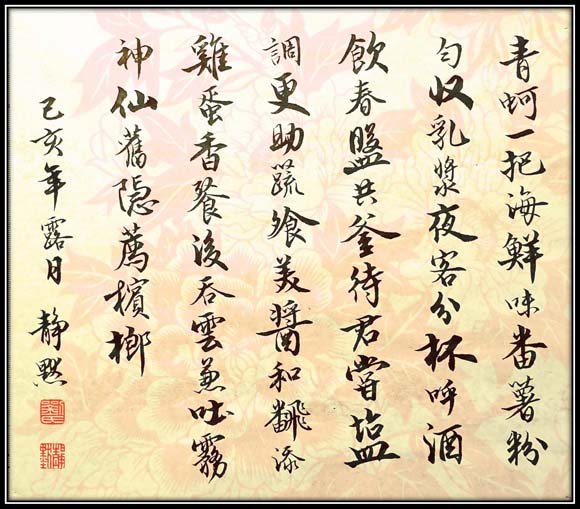 青蚵一把海鮮味番薯粉
勻収乳漿夜客分杯呼酒
飲春盤共釜待君嘗塩
調更助蔬飧美醬和飜添
雞蛋香餐後吞雲兼吐霧
神仙舊隱薦檳榔
己亥年露月 靜默